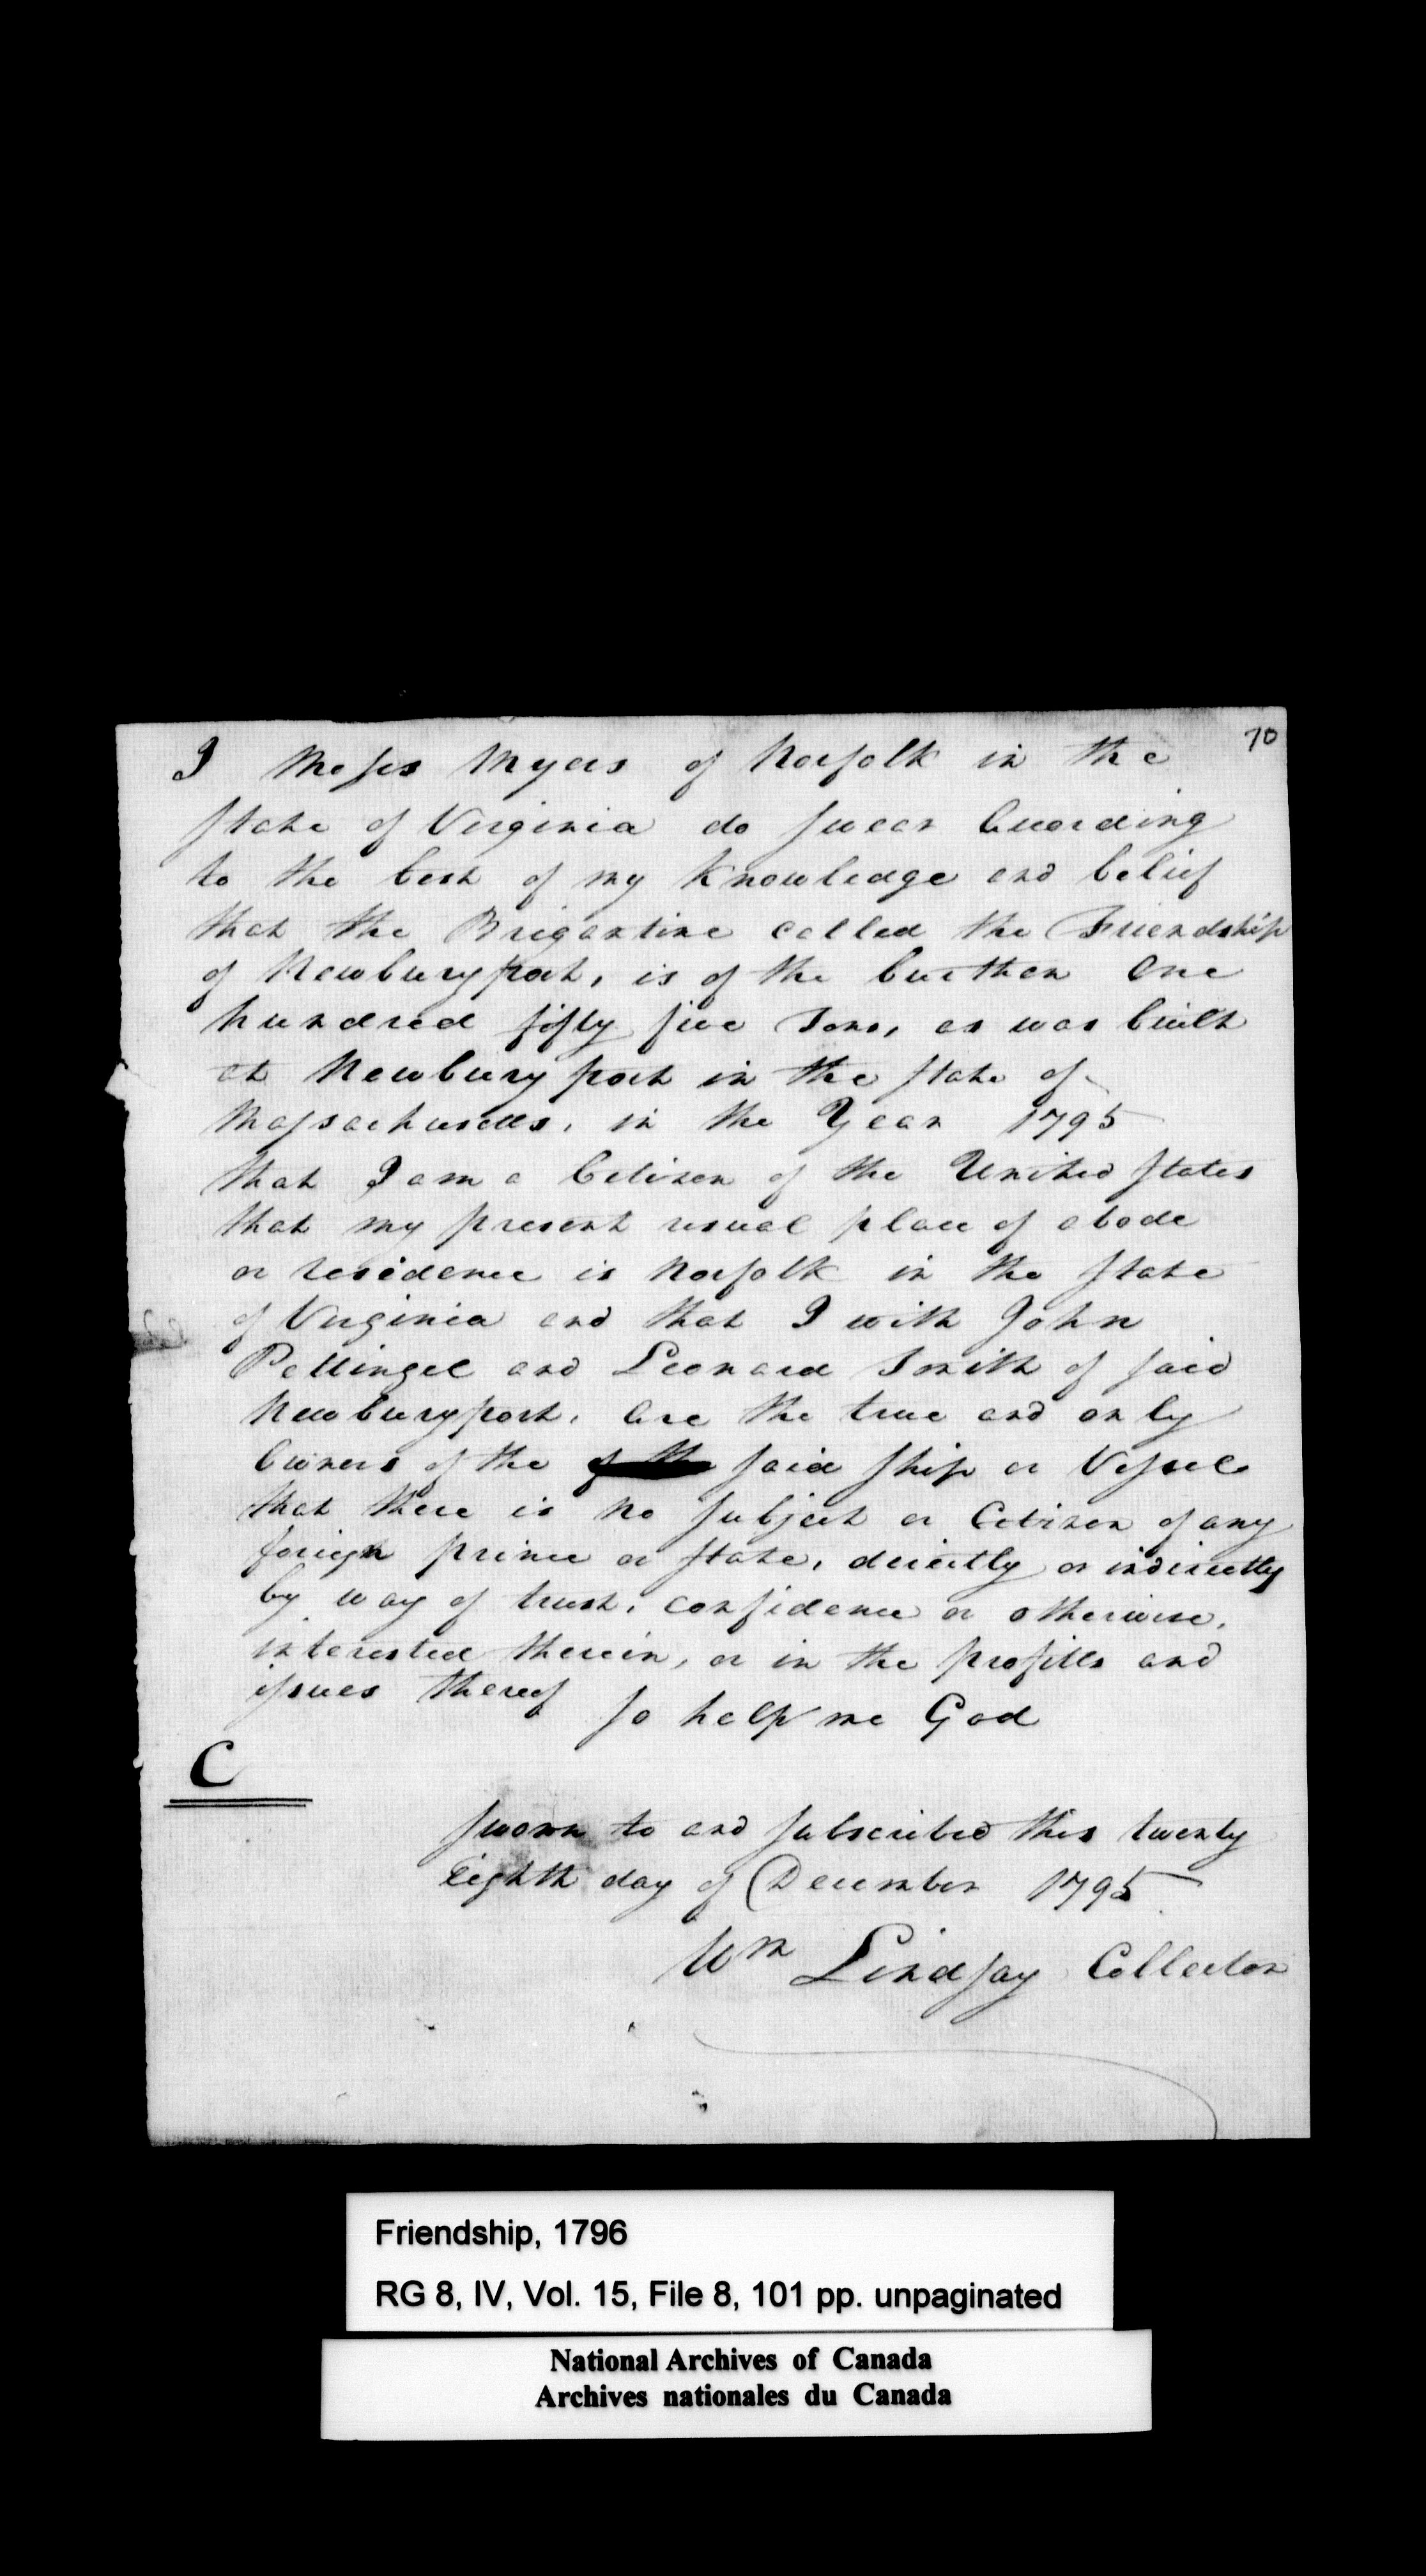 70
I Moses Myers of Norfolk in the
State of Virginia do Swear According
to the best of my Knowledge and belief
that the Brigantine called the Friendship
of Newburyport, is of the burthen One
hundred fifty five Tons, as was built
at Newbury port in the State of
Massachusetts, in the Year 1795
that I am a Citizen of the United States
that my present usual place of abode
or residence is Norfolk in the State
of Virginia and that I with John
Pettingel and Leonard Smith of said
Newburyport, Are the true and only
Owners of the of the said Ship or Vessel
that there is no Subject or Citizen of any
foriegn prince or State, directly or indirectly
by way of trust, confidence or otherwise,
interested therein, or in the profitts and
issues thereof So help me God
C
Sworn to and Subscribed this twenty
Eighth day of December 1795
Wm Lindsay Collector
Friendship, 1796
RG 8, IV, Vol. 15, File 8, 101 pp. unpaginated
National Archives of Canada
Archives nationales du Canada